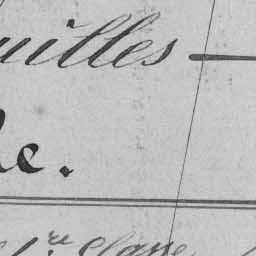 uilles —
le.
1re Classe